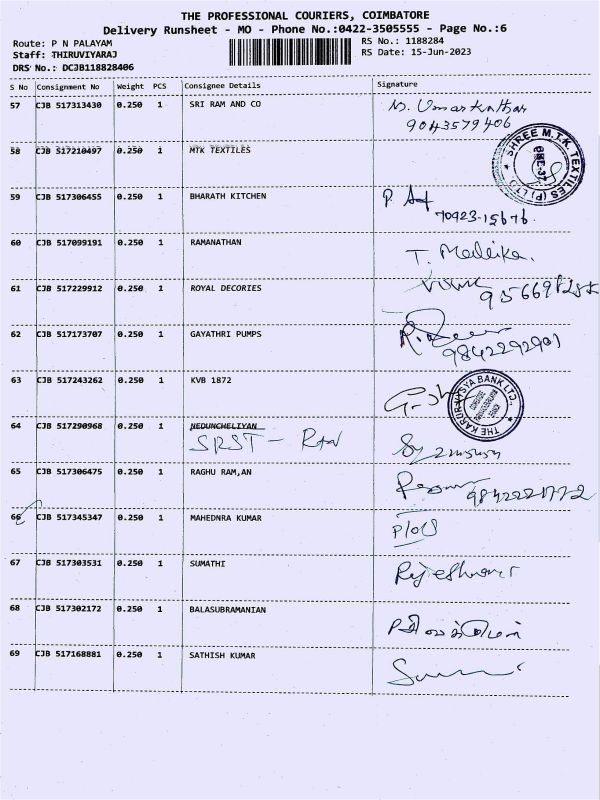 THE PROFESSIONAL COURIERS, COIMBATORE
Delivery Runsheet - MO - Phone No.:0422-3505555 - Page No.:6
Route: P N PALAYAM
Staff: THIRUVIYARAJ
DRS No.: DCJB118828406
RS No.: 1188284
RS Date: 15-Jun-2023
S No Consignment No Weight PCS Consignee Details Signature
57 CJB 517313430 0.250 1 SRI RAM AND CO
9043579406
58 CJB 517210497 0.250 1 MTK TEXTILES
SHREE M.T.K. TEXTILES (P) LTD
59 CJB 517306455 0.250 1 BHARATH KITCHEN
70923-15676.
60 CJB 517099191 0.250 1 RAMANATHAN T. Mallika.
61 CJB 517229912 0.250 1 ROYAL DECORIES
62 CJB 517173707 0.250 1 GAYATHRI PUMPS
9842292901
63 CJB 517243262 0.250 1 KVB 1872
THE KARUR VYSYA BANK LTD.,
64 CJB 517290968 0.250 1 NEDUNCHELIYAN
SRST -
65 CJB 517306475 0.250 1 RAGHU RAM,AN
66 CJB 517345347 0.250 1 MAHEDNRA KUMAR
67 CJB 517303531 0.250 1 SUMATHI Rajeshwari
68 CJB 517302172 0.250 1 BALASUBRAMANIAN
69 CJB 517168881 0.250 1 SATHISH KUMAR